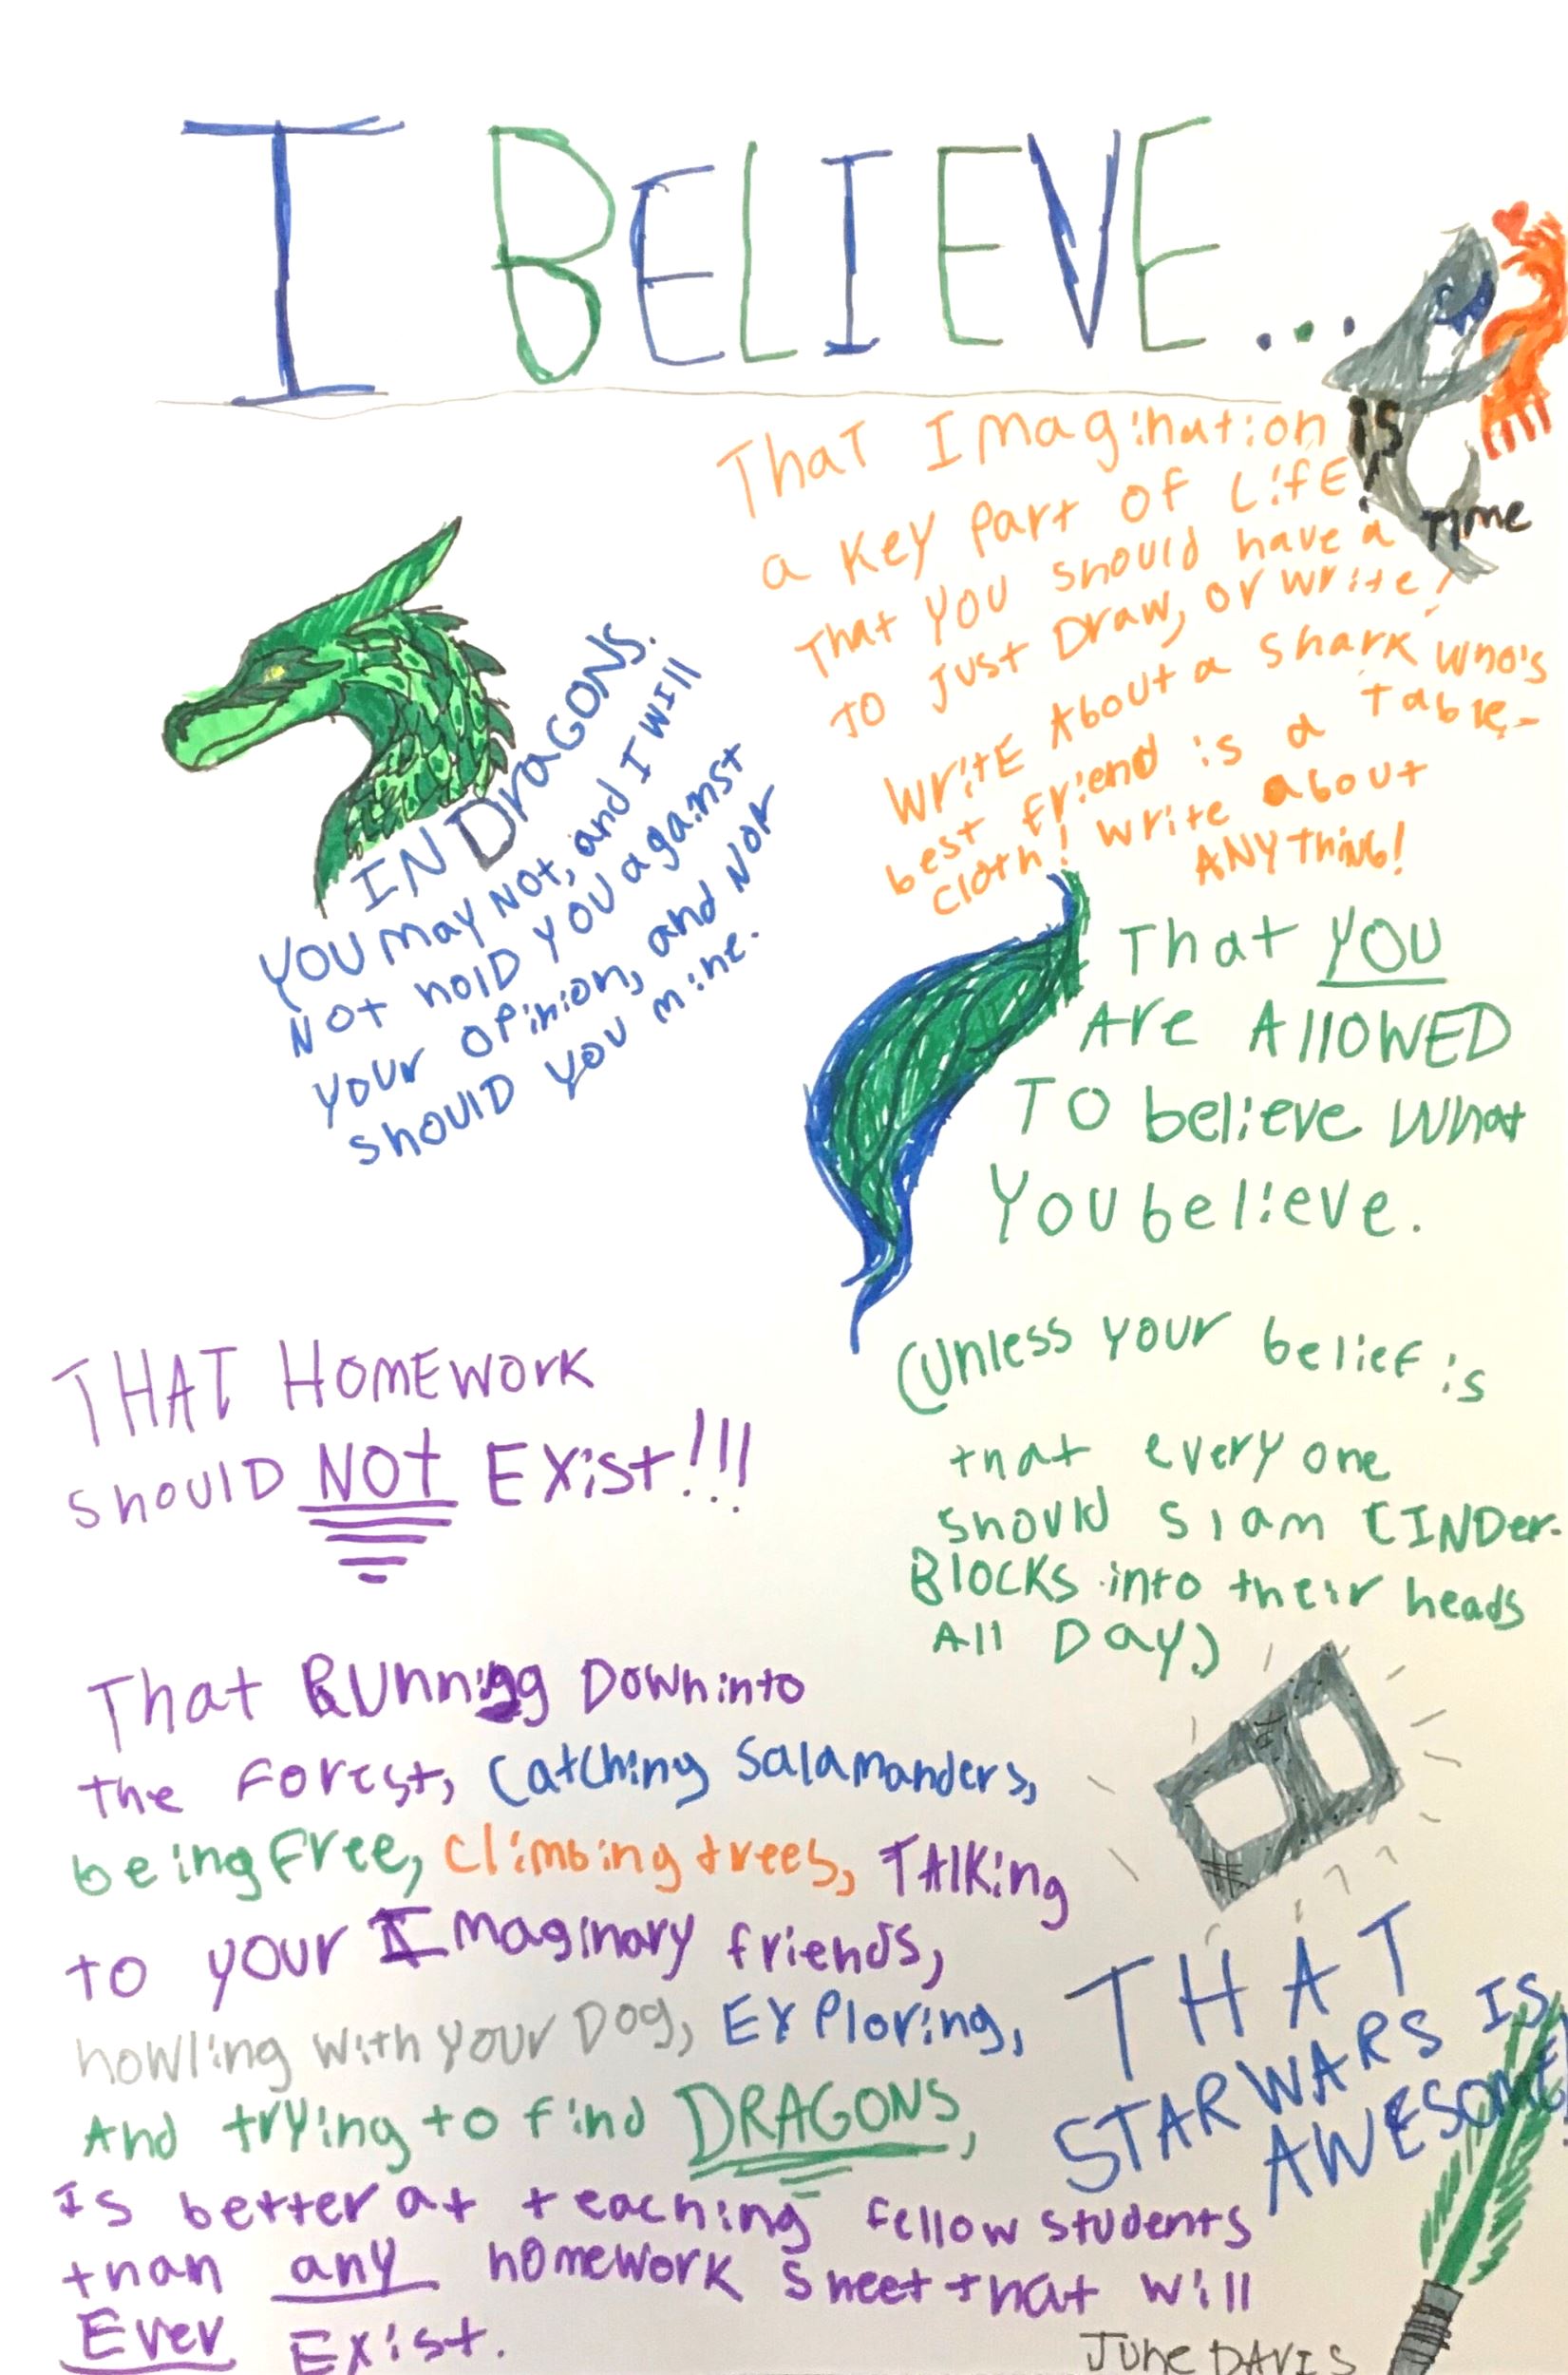 I BELIEVE...
That Imagination is
a Key Part OF LifE!
That YOU should have a Time
TO Just Draw, or write!
WritE About a Shark who's
best friend is a Table-
cloth! write about
ANYThiNG!
IN DraGONS.
YOU may NOt, and I Will
NOt holD YOU against
your opinion, and Nor
should you mine.
That YOU
Are AllOWED
TO believe What
You believe.
(Unless your belief is
that every one
should slam CINDer-
BlOCKS into their heads
All Day)
THAT HOMEWOrK
shoulD NOt Exist!!!
That RUnning Down into
the Forest, Catching Salamanders,
being free, climbing trees, TAlking
to your Imaginary friends,
howling with your Dog, ExPloring,
And trying to find DRAGONS,
Is better at teaching fellow students
than any homework sheet that will
Ever Exist.
THAT
STAR WARS IS
AWESOME!
June DAVIS